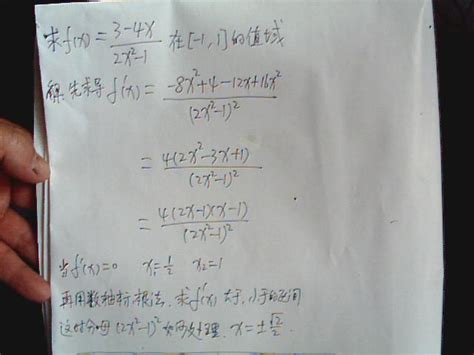 求f(x)=\frac{3-4x}{2x^2-1} 在[-1,1]的值域
解:先求导f'(x)=\frac{-8x^2+4-12x+16x^2}{(2x^2-1)^2}
=\frac{4(2x^2-3x+1)}{(2x^2-1)^2}
=\frac{4(2x-1)(x-1)}{(2x^2-1)^2}
当f'(x)=0 x_1=\frac{1}{2} x_2=1
再用数轴标根法,求f'(x)大于,小于的区间
这时分母(2x^2-1)^2如何处理,x=±\frac{\sqrt{2}}{2}.